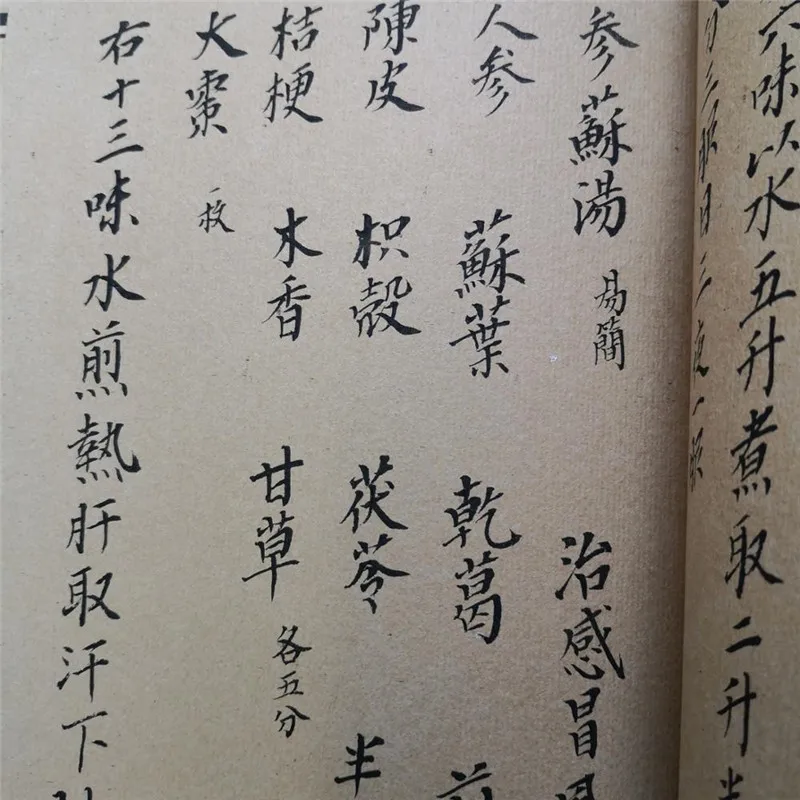 六味以水五升煮取二升半
三服日三夜一服
参蘇湯 易簡 治感冒風
人参 蘇葉 乾葛 前
陳皮 枳殼 茯苓 半
桔梗 木香 甘草 各五分
大棗 一枚
右十三味水煎熱肝取汗下